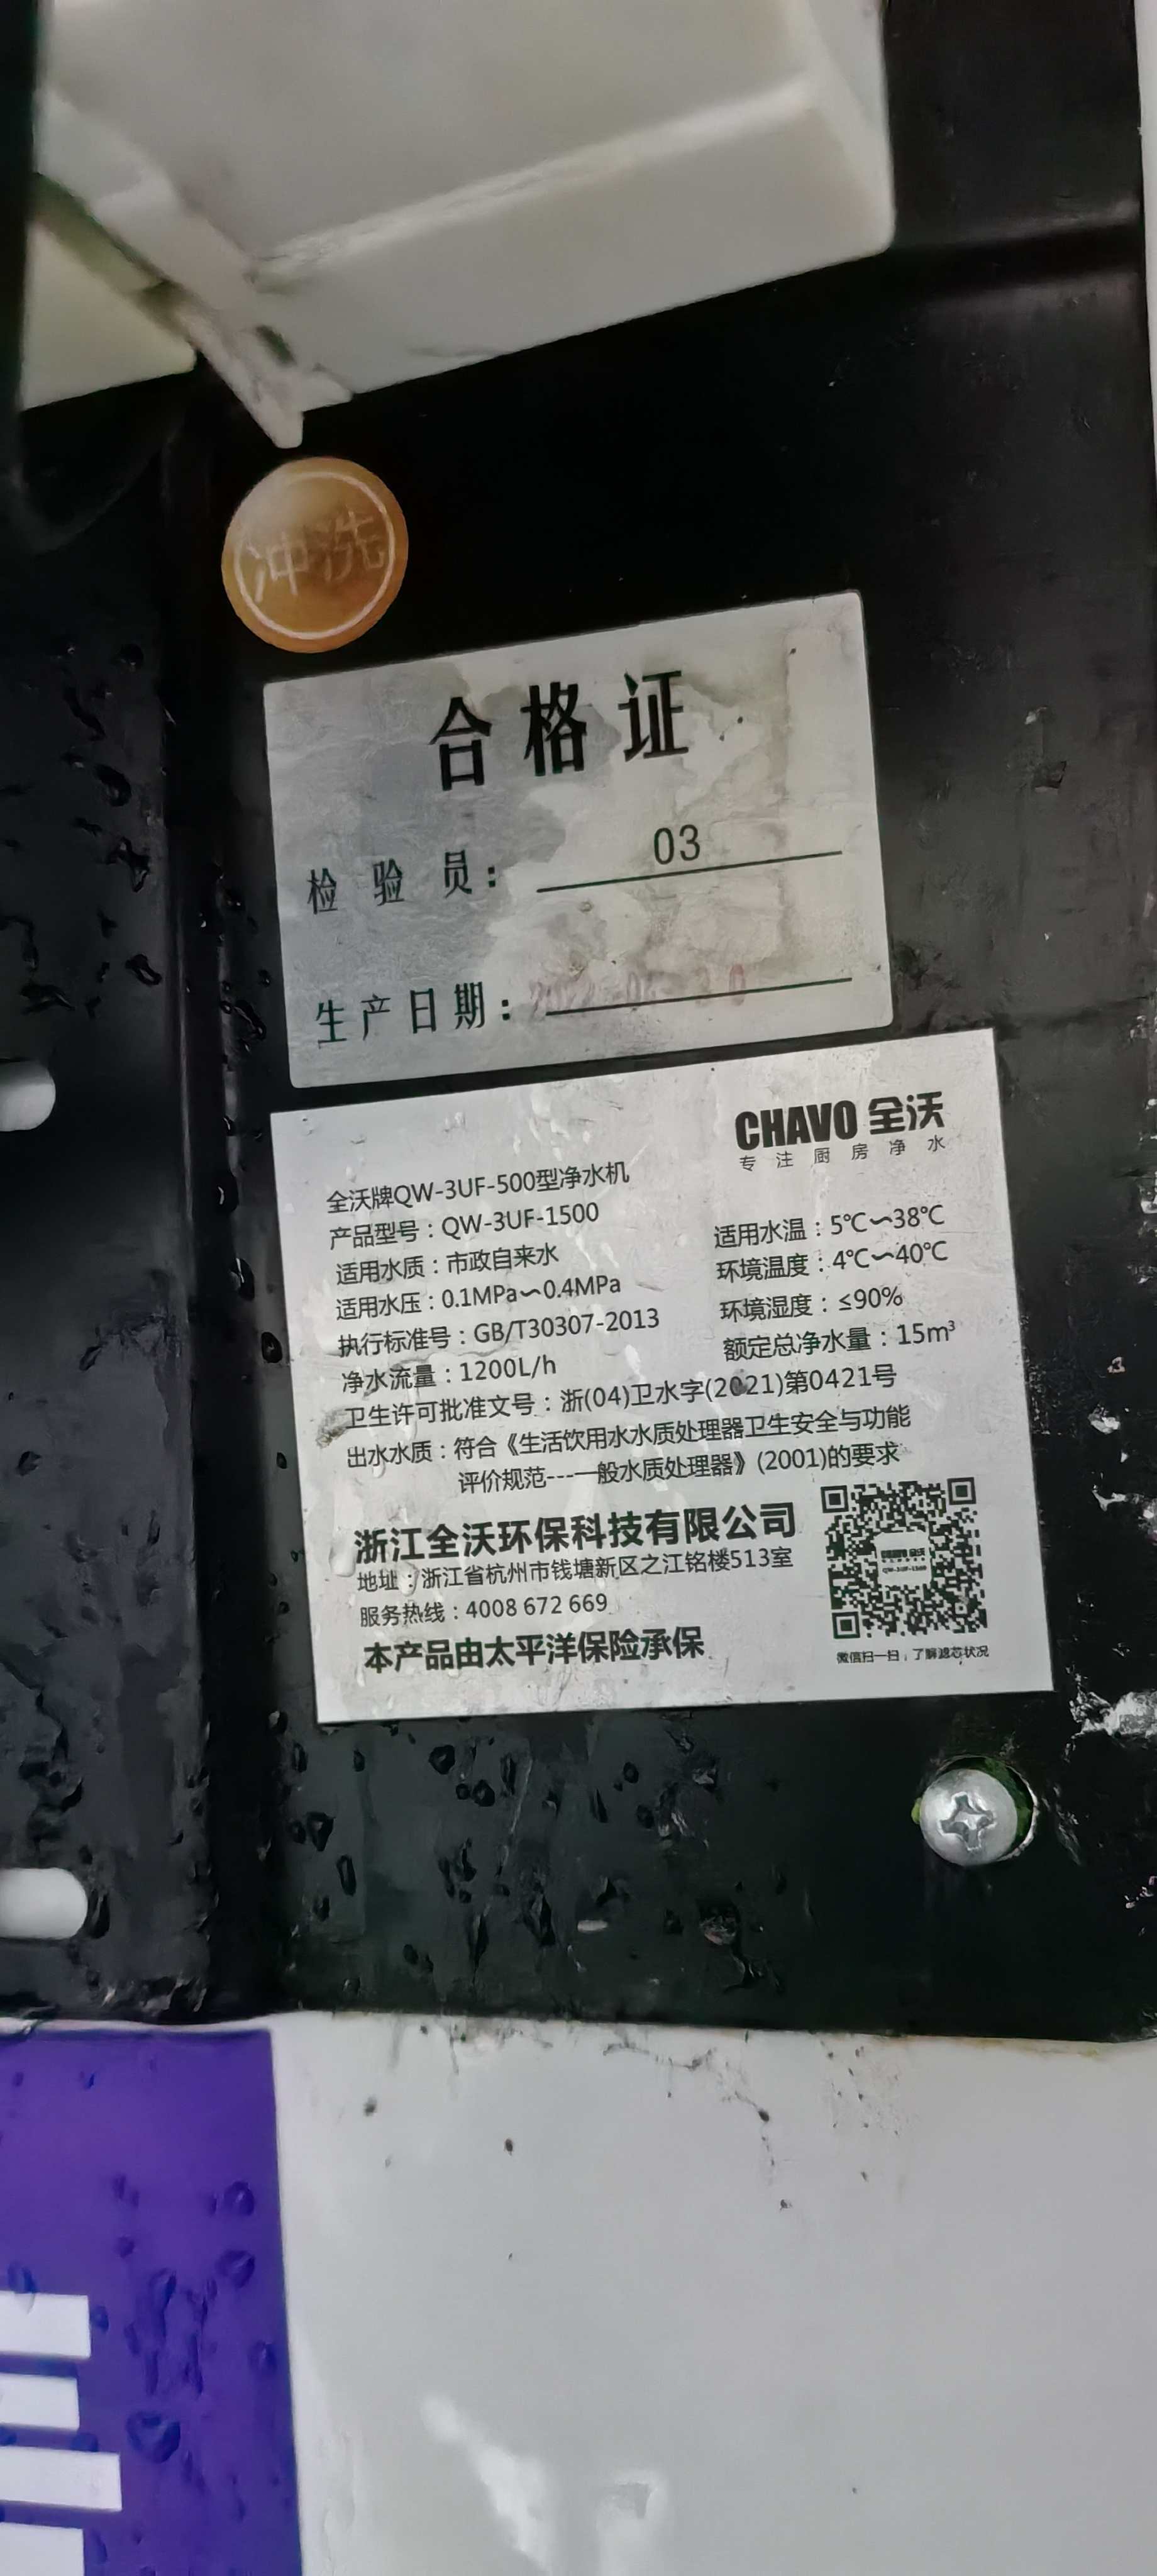 冲洗
合格证
检验员： 03
生产日期：
CHAVO 全沃
专注厨房净水
全沃牌QW-3UF-500型净水机
产品型号：QW-3UF-1500
适用水质：市政自来水
适用水温：5℃~38℃
适用水压：0.1MPa~0.4MPa
环境温度：4℃~40℃
执行标准号：GB/T30307-2013
环境湿度：≤90%
净水流量：1200L/h
额定总净水量：15m³
卫生许可批准文号：浙(04)卫水字(2021)第0421号
出水水质：符合《生活饮用水水质处理器卫生安全与功能
评价规范---一般水质处理器》(2001)的要求
浙江全沃环保科技有限公司
地址：浙江省杭州市钱塘新区之江铭楼513室
服务热线：4008 672 669
本产品由太平洋保险承保
微信扫一扫，了解滤芯状况